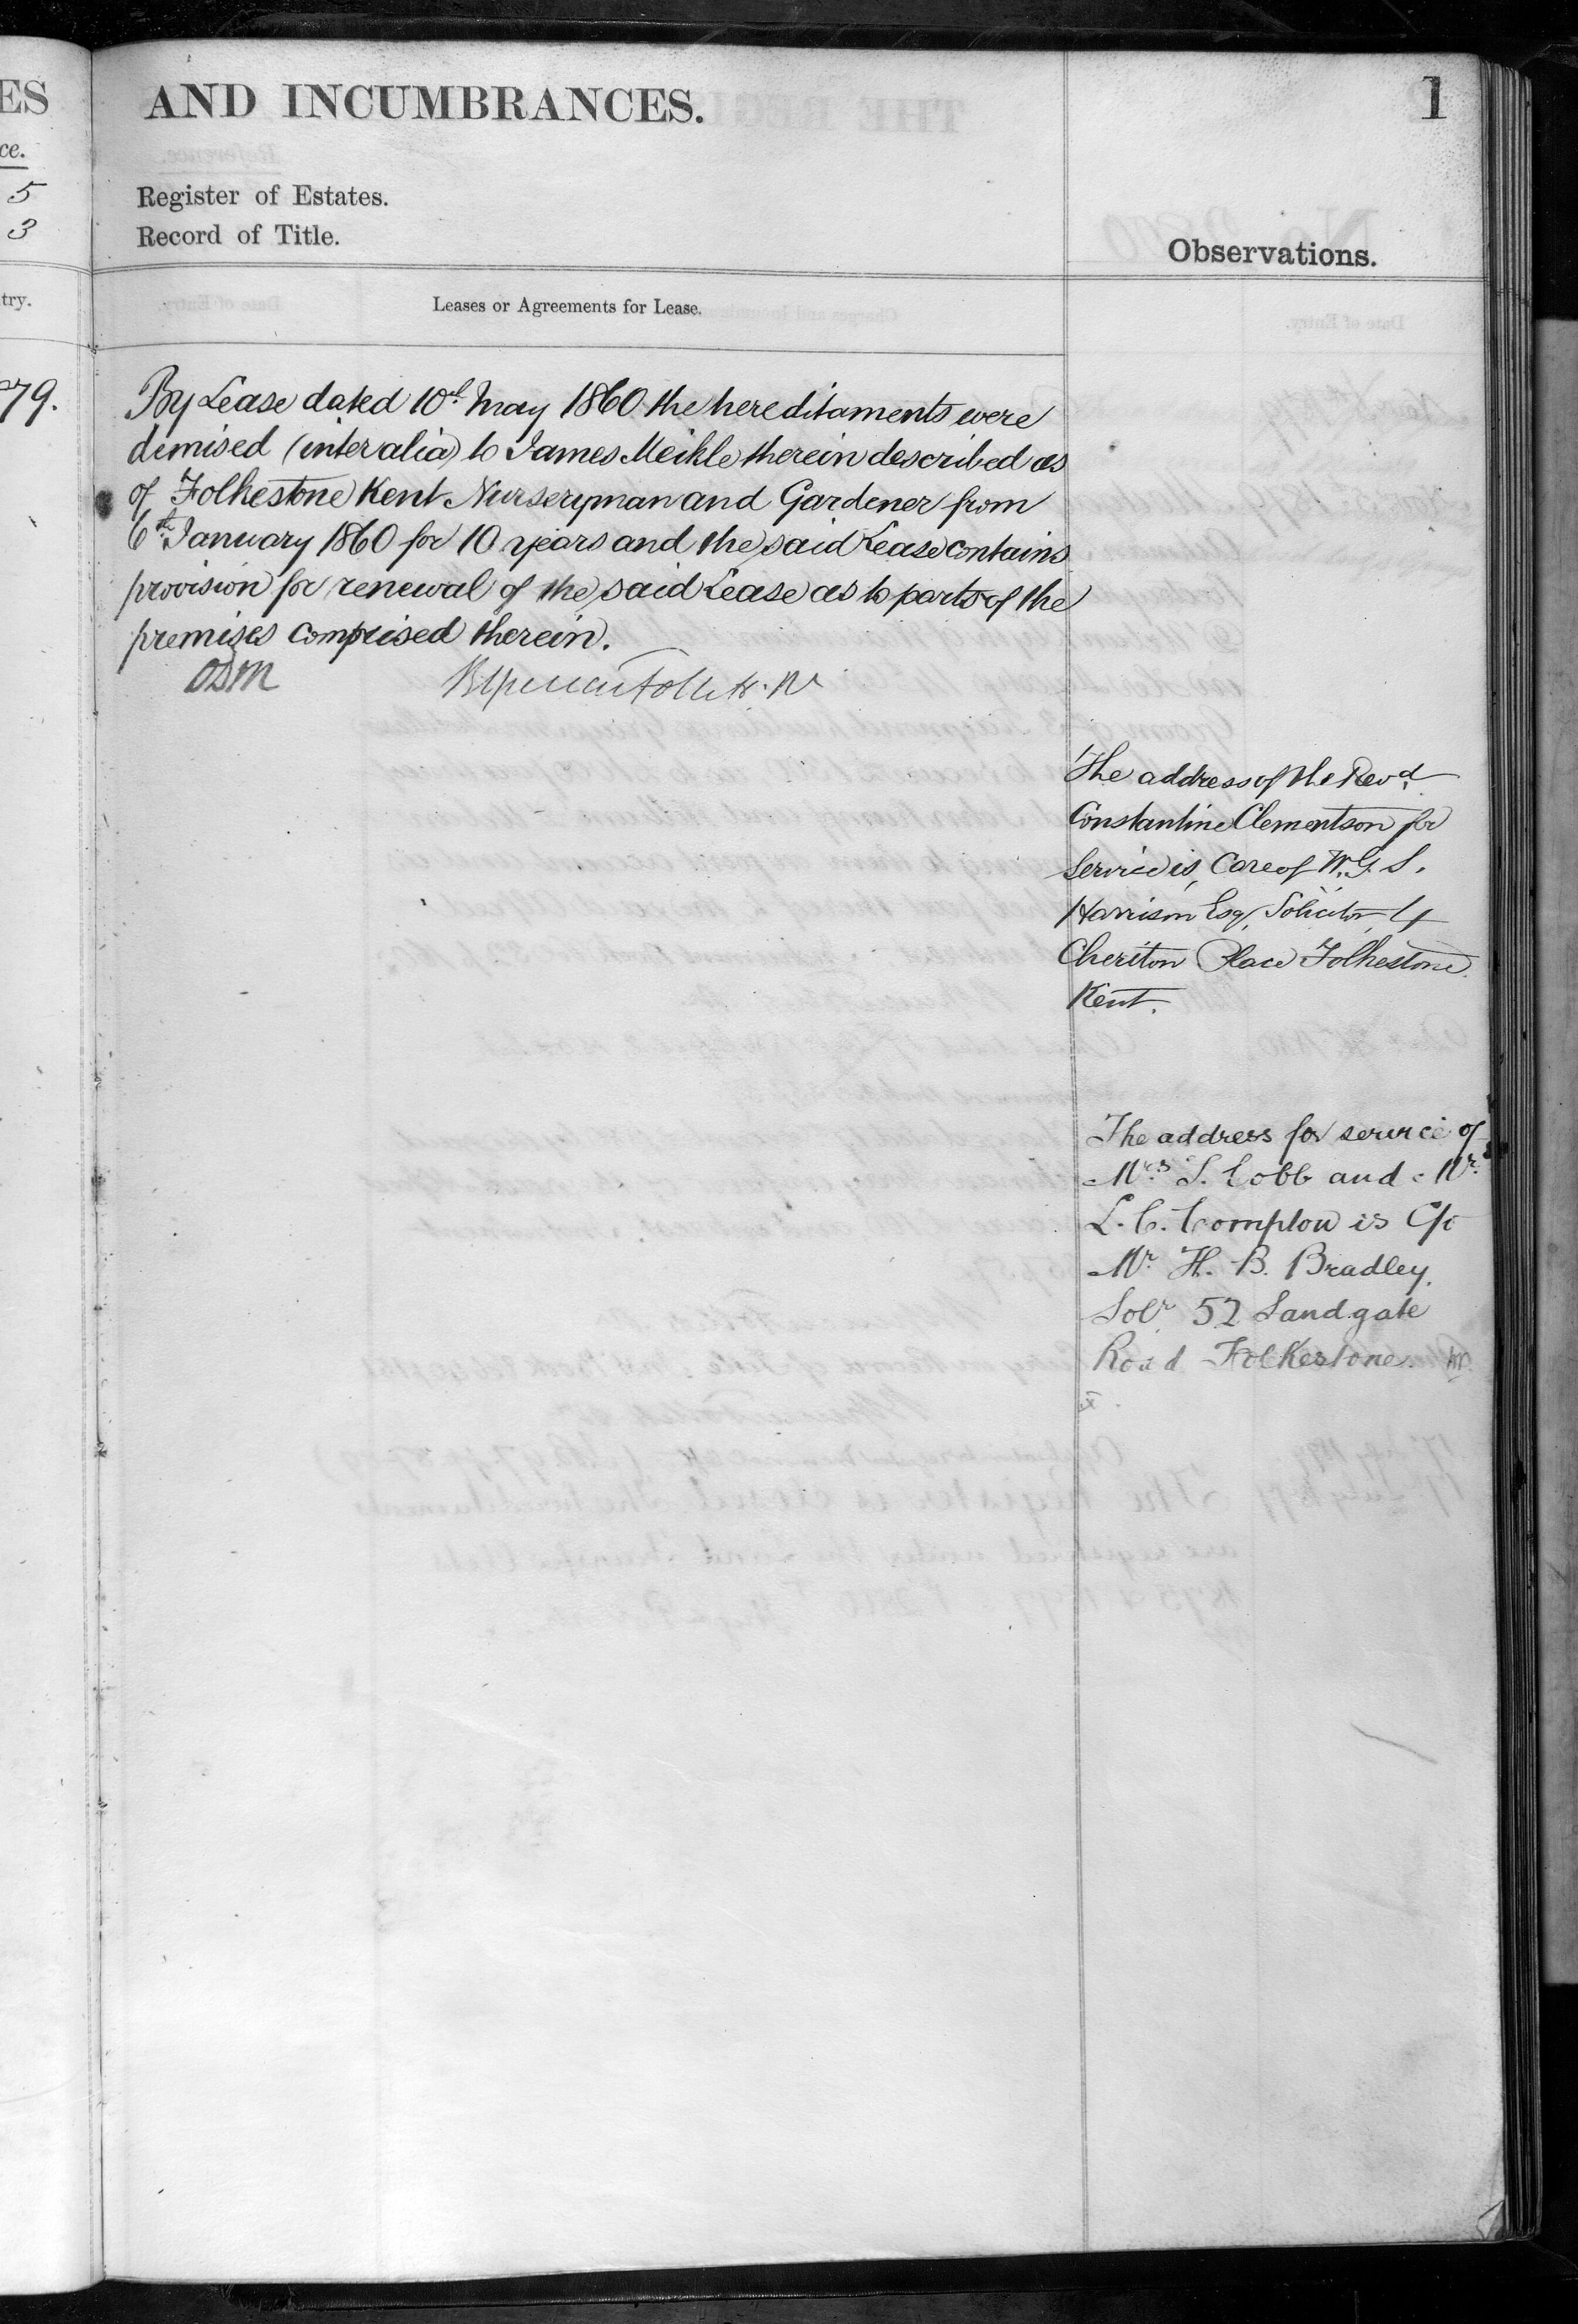 ES
ce.
5
3
try.
79.
AND INCUMBRANCES.
1
Register of Estates.
Record of Title.
Observations.
Leases or Agreements for Lease.
By Lease dated 10th May 1860 the hereditaments were
demised (inter alia) to James Meikle therein described as
of Folkestone Kent Nurseryman and Gardener from
6th January 1860 for 10 years and the said Lease contains
provision for renewal of the said Lease as to parts of the
premises comprised therein.
The address of the Revd.
Constantine Clementson for
Service is, Care of W. G. S.
Harrison Esq, Solicitor, 4
Cheriton Place Folkestone
Kent.
The address for service of
Mrs. S. Cobb and Mr.
L. C. Compton is C/o
Mr. H. B. Bradley.
Solr 52 Sandgate
Road Folkestone.